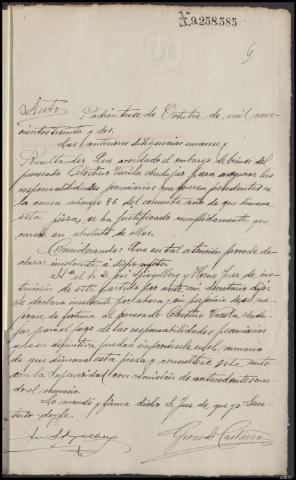 N.9.258.585
6
Auto. Padrón trece de Octubre de mil nove-
cientos treinta y dos.
Las anteriores diligencias únanse y
Resultando: Que acordado el embargo de bienes del
procesado Celestino Varela para asegurar las
responsabilidades pecuniarias que fueren procedentes en
la causa número 86 del corriente año de que dimana
esta pieza, se ha justificado cumplidamente que
carece en absoluto de ellos.
Considerando: Que en tal situación procede de-
clarar insolvente a dicho
S.Sª. por ante mi Secretario dijo:
Se declara insolvente por ahora y sin perjuicio de si me-
jorase de fortuna al procesado Celestino Varela
para el pago de las responsabilidades pecuniarias
que en definitiva puedan imponérsele en el sumario
de que dimana esta pieza y consúltese este auto
con la Superioridad con remisión de antecedentes
do el sumario.
Lo mandó y firma dicho Sr. Juez de que yo Secre-
tario doy fe.
Gerardo